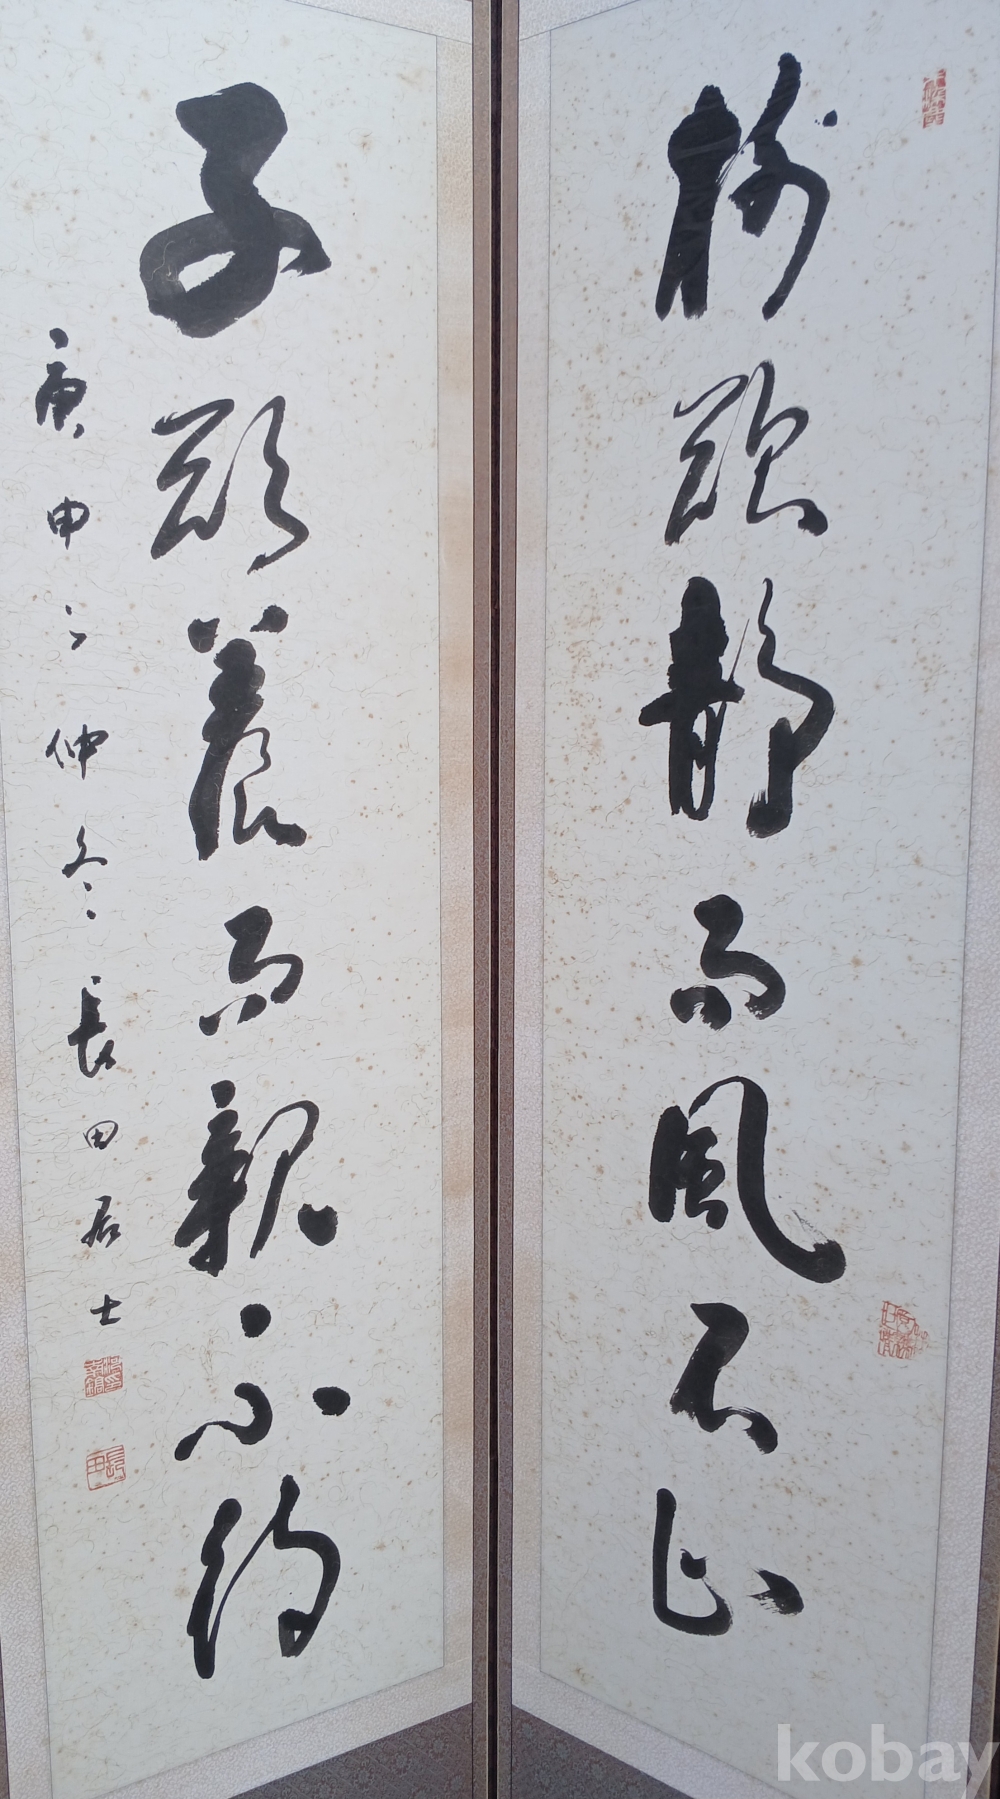 樹欲靜而風不止
子欲養而親不待
庚申之仲冬 長田居士
kobay